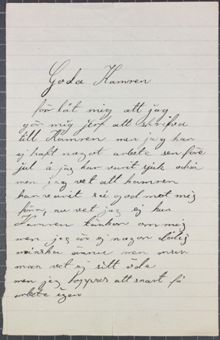 Goda Hamren
för låt mig att jag
gör mig jerf att skrifva
till Hamren men jag har
ej haft något arbete sen före
jul å jag har varit sjuk också
men jag vet att hamren
har varit så god mot mig
förr, nu vet jag ej hur
Hamren tänker om mig
men jag är ej någon dålig
mänska ännu men, man
man vet ej sitt öde
men jag hoppas att snart få
arbete igen